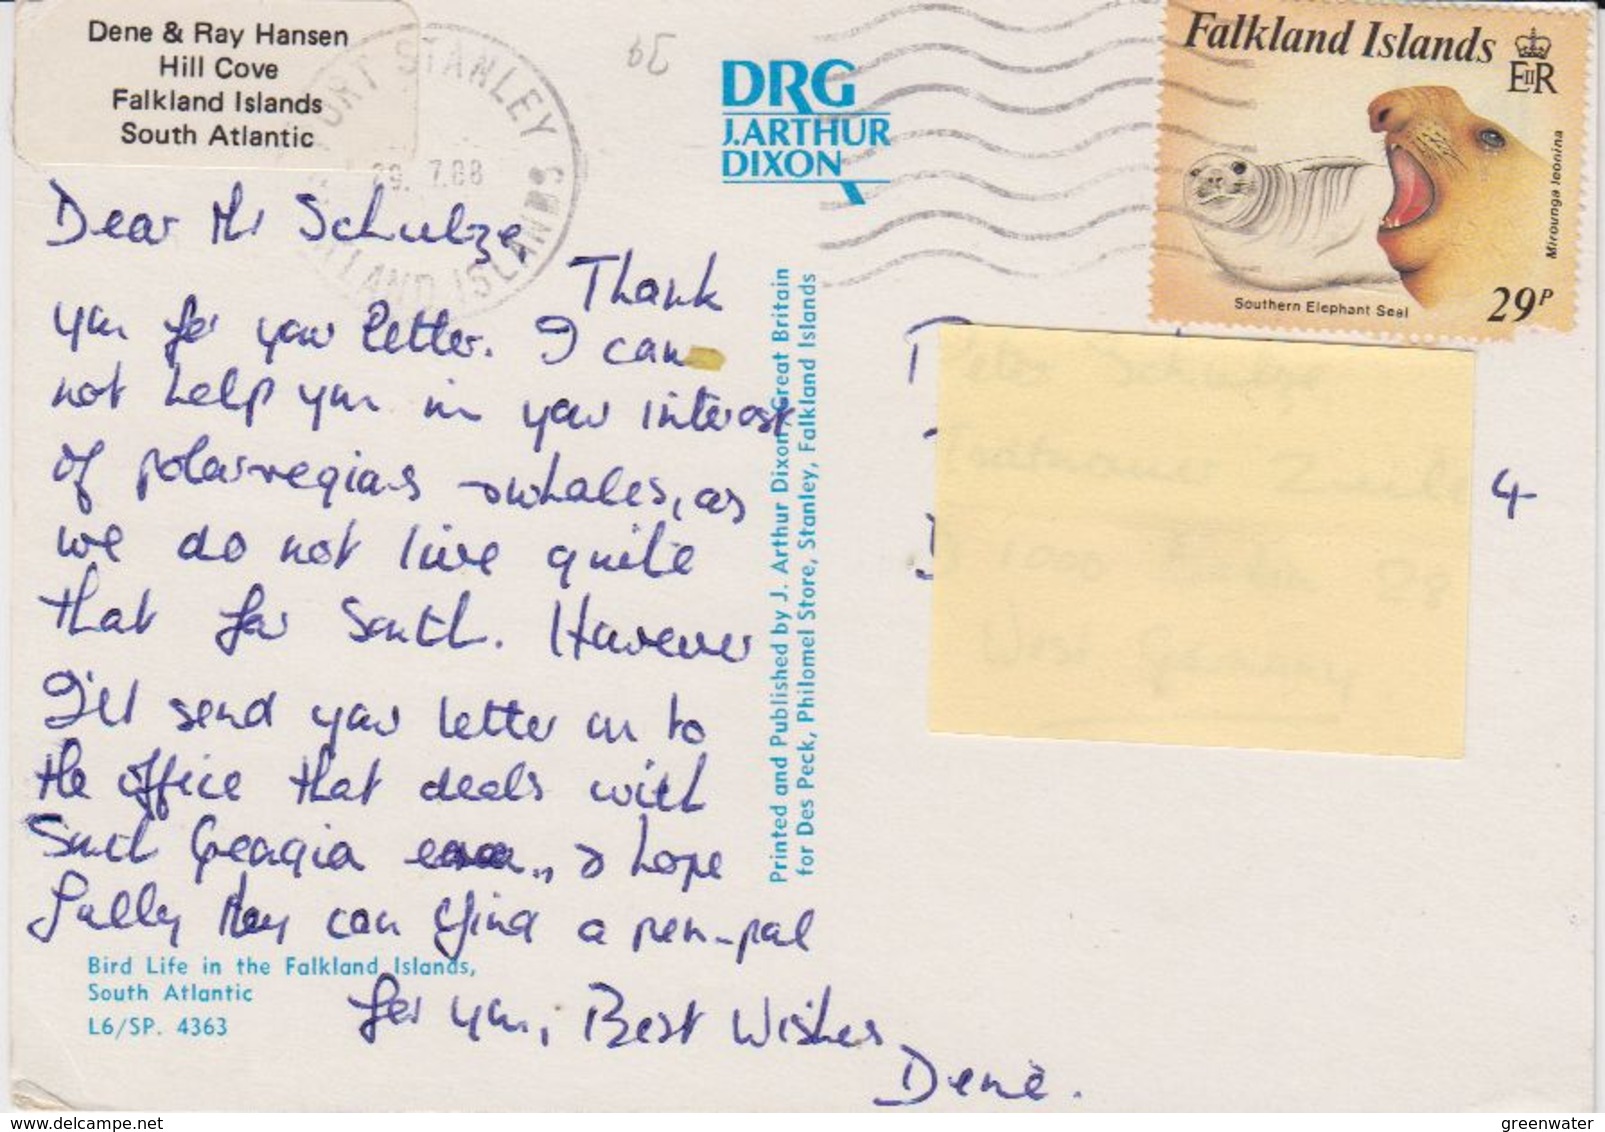 Dene & Ray Hansen
Hill Cove
Falkland Islands
South Atlantic
PORT STANLEY
29. 7.88
FALKLAND ISLANDS
DRG
J.ARTHUR
DIXON
Falkland Islands
EIIR
Mirounga leonina
Southern Elephant Seal
29P
Dear Mr Schulze,
Thank
you for your letter. I can
not help you in your interest
of polar regions whales, as
we do not live quite
that far South. However
I'll send your letter on to
the office that deals with
South Georgia & hope
they can find a pen-pal
for you, Best Wishes
Dene.
Printed and Published by J. Arthur Dixon, Great Britain
for Des Peck, Philomel Store, Stanley, Falkland Islands
4
West Germany
Bird Life in the Falkland Islands,
South Atlantic
L6/SP. 4363
delcampe.net
greenwater